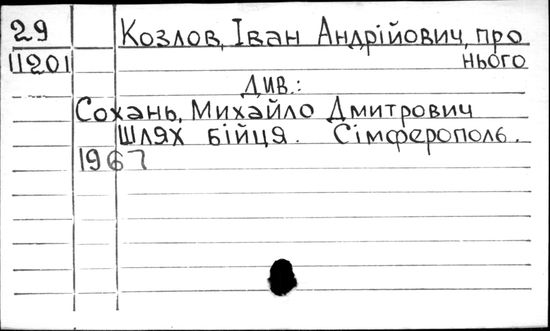 29 Козлов, Іван Андрійович, про
11201 нього
Див.:
Сохань, Михайло Дмитрович
Шлях бійця. Сімферополь.
1967